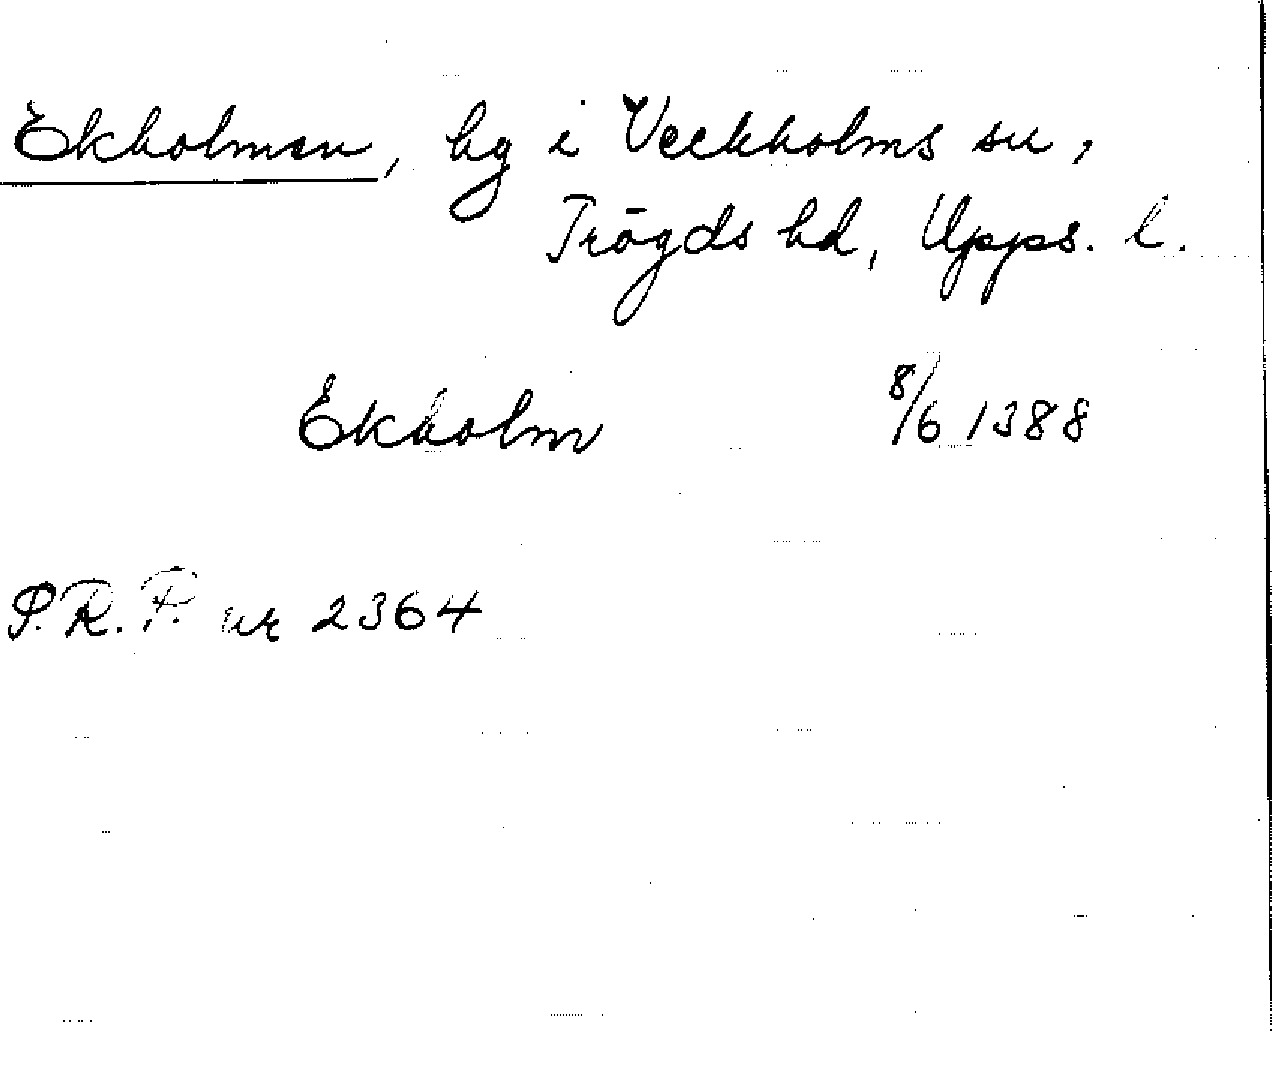 Ekholmen, hg i Veckholms sn,
Trögds hd, Upps. l.
Ekholm 8/6 1388
S.R.P. nr 2364